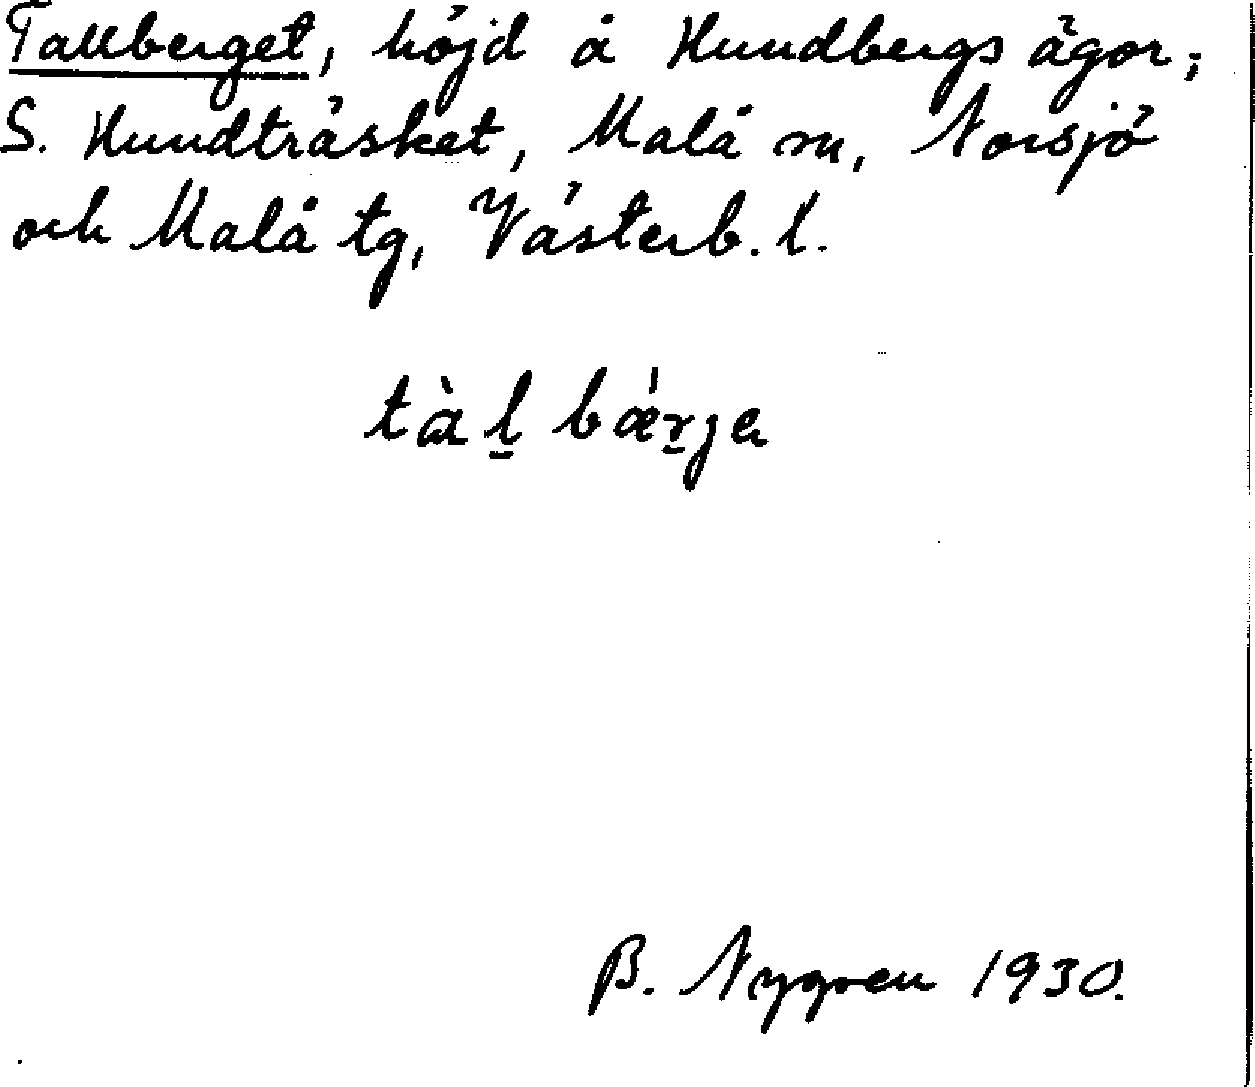 Tallberget, höjd å Hundbergs ägor;
S. Hundträsket, Malå sn, Norsjö
och Malå tg, Västerb. l.
tàḻ bǽṟja
B. Nygren 1930.